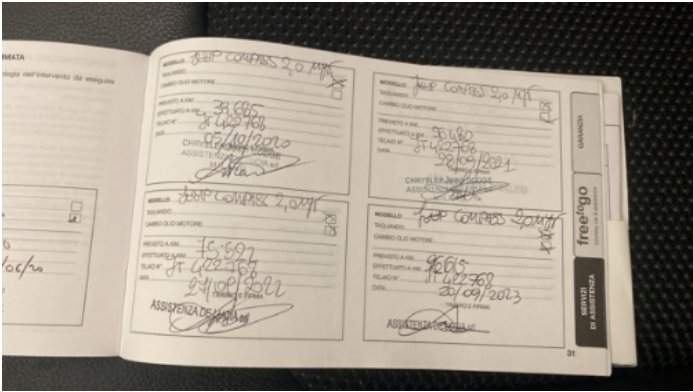 RMATA
ologia dell'intervento da eseguire
/06/20
MODELLO Jeep COMPASS 2,0 MJT
TAGLIANDO
CAMBIO OLIO MOTORE
PREVISTO A KM
EFFETTUATO A KM 39.685
TELAIO N° JT 422768
DATA 05/10/2020
CHRYSLER JEEP DODGE
ASSISTENZA
MODELLO Jeep COMPASS 2,0 MJT
TAGLIANDO
CAMBIO OLIO MOTORE
PREVISTO A KM
EFFETTUATO A KM 56480
TELAIO N° JT 422768
DATA 22/09/2021
TIMBRO E FIRMA
CHRYSLER JEEP DODGE
ASSISTENZA
MODELLO Jeep COMPASS 2,0 MJT
TAGLIANDO
CAMBIO OLIO MOTORE
PREVISTO A KM
EFFETTUATO A KM 75.592
TELAIO N° JT 422768
DATA 27/09/2022
TIMBRO E FIRMA
ASSISTENZA
MODELLO Jeep COMPASS 2,0 MJT
TAGLIANDO
CAMBIO OLIO MOTORE
PREVISTO A KM
EFFETTUATO A KM 96615
TELAIO N° JT 422768
DATA 20/09/2023
TIMBRO E FIRMA
ASSISTENZA
31
GARANZIA
freetogo
SERVIZI
DI ASSISTENZA